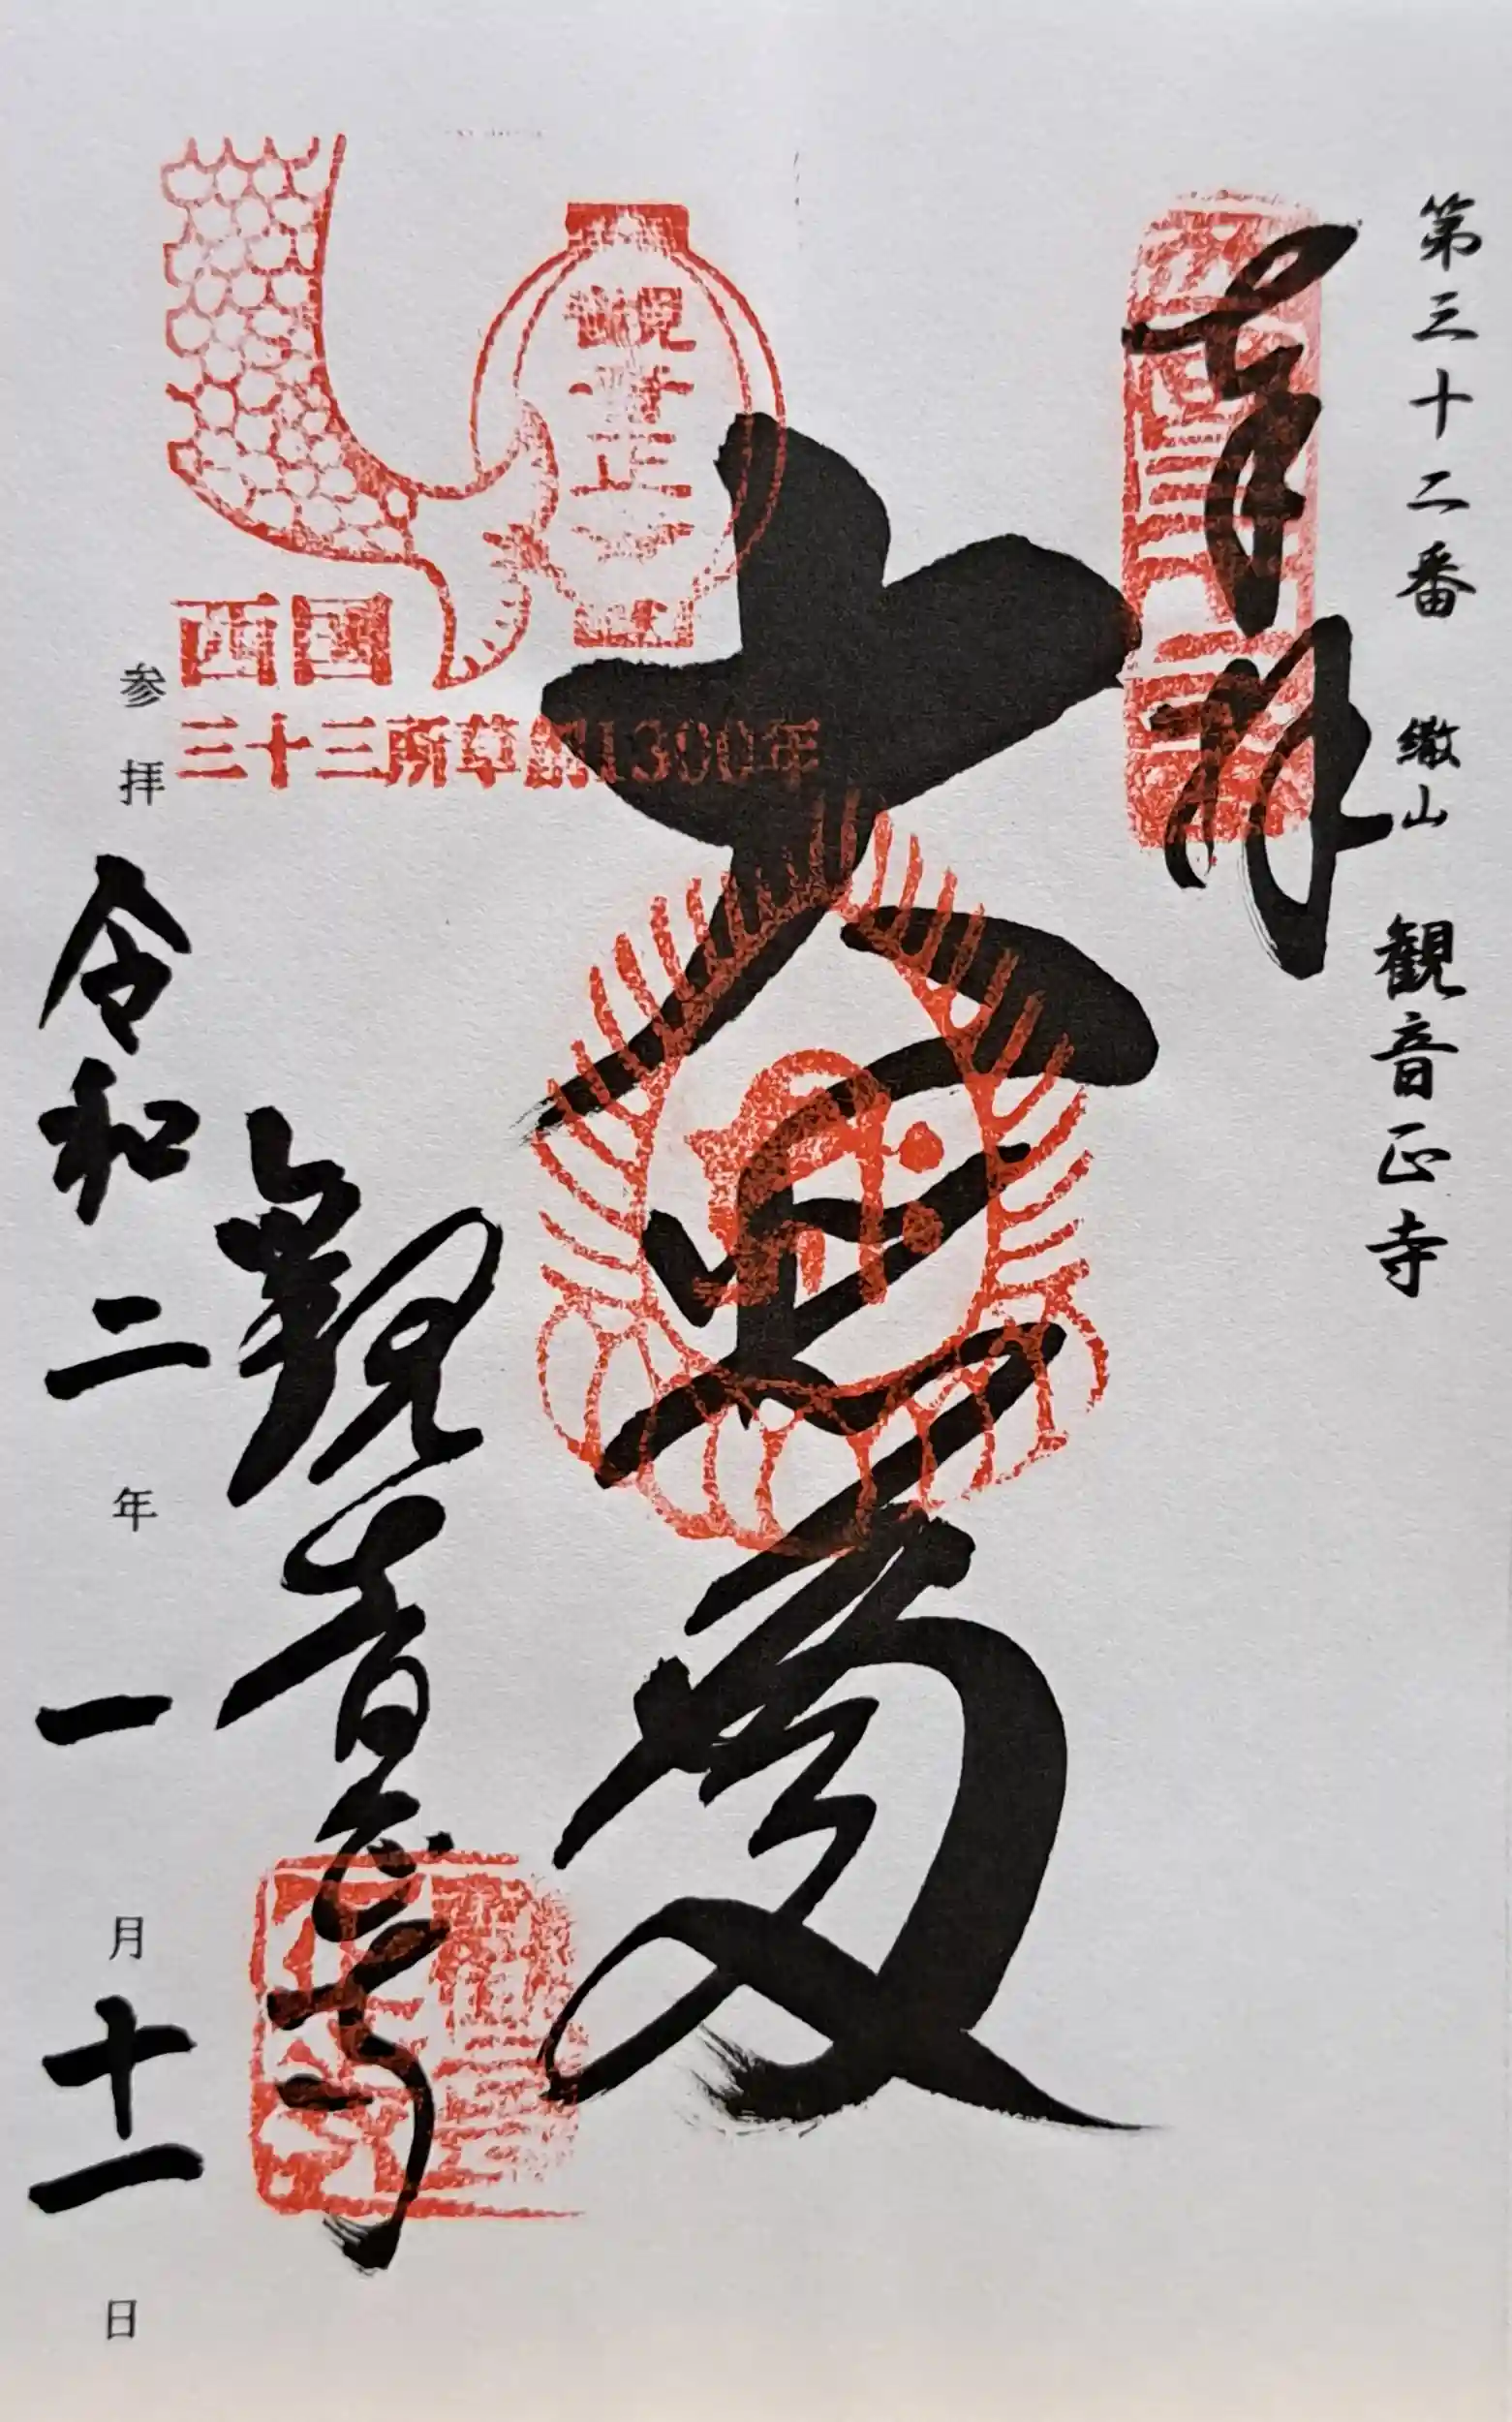 第三十二番 繖山 観音正寺
奉拝
大悲閣
觀音正寺
西国
三十三所草創1300年
参拝 令和二年一月十一日